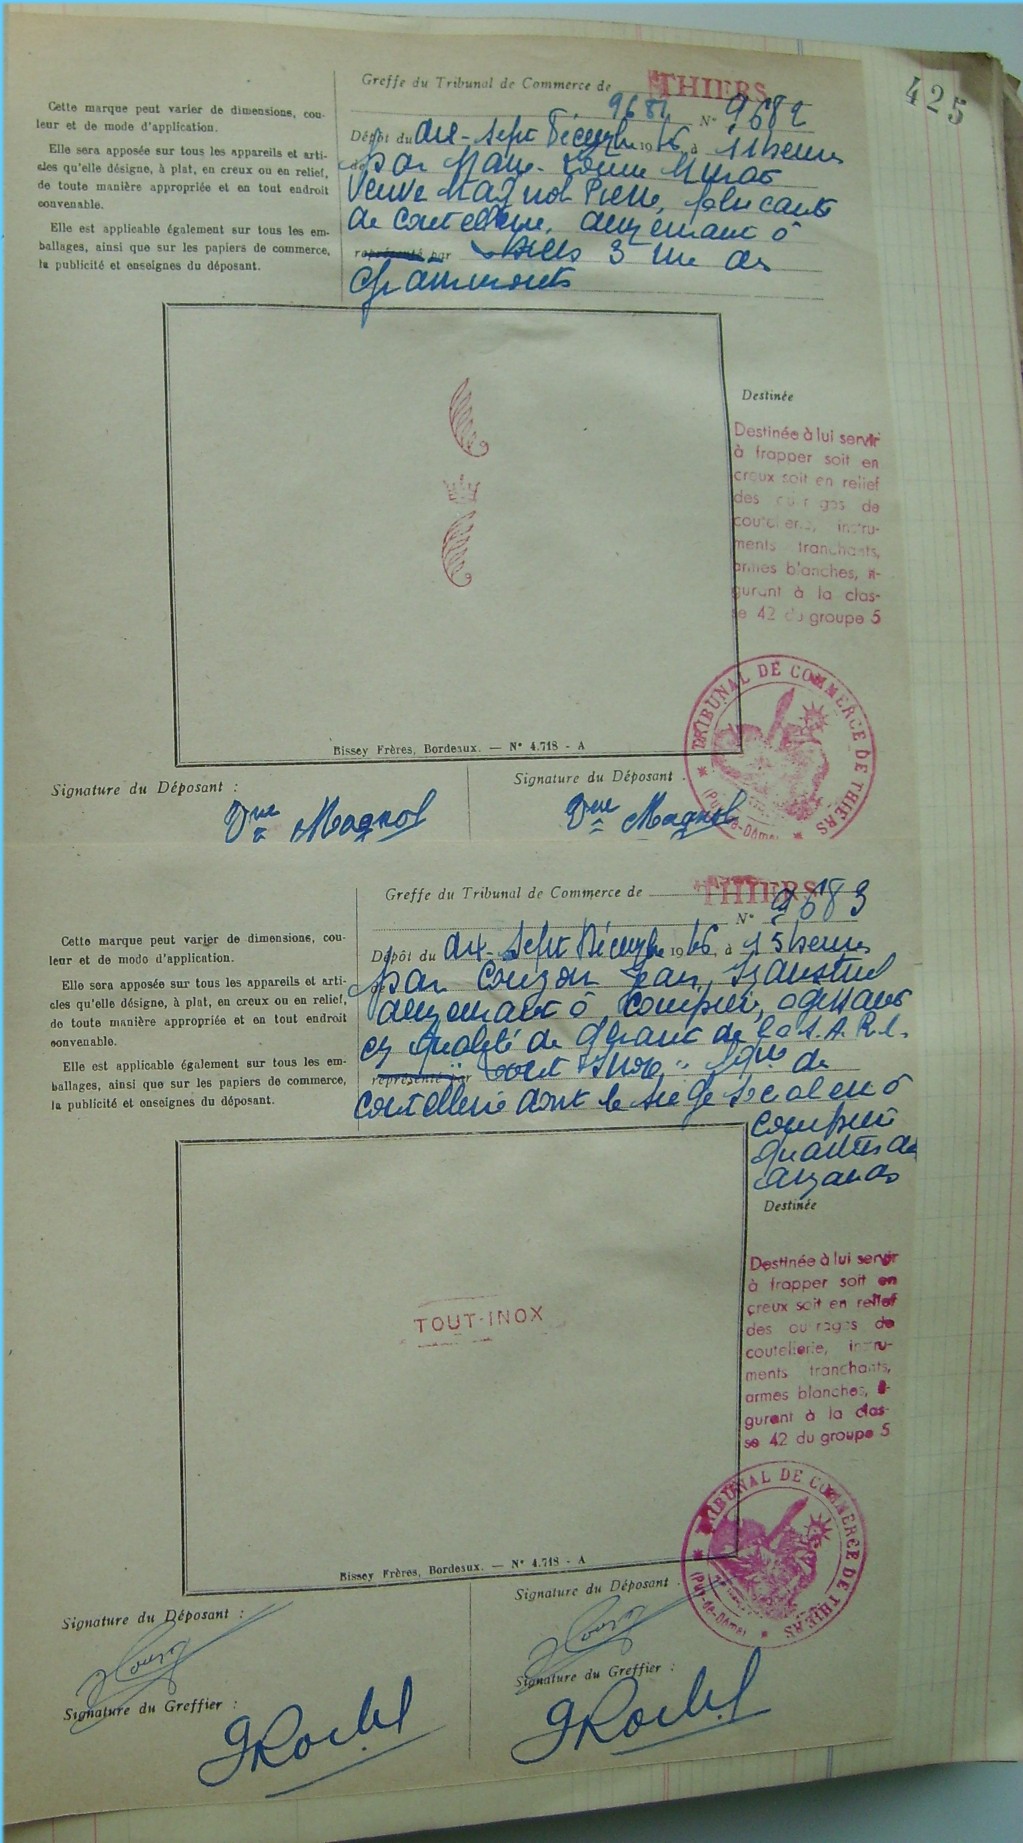 425
Greffe du Tribunal de Commerce de THIERS
9681 N° 9682
Cette marque peut varier de dimensions, cou-
leur et de mode d'application.
Elle sera apposée sur tous les appareils et arti-
cles qu'elle désigne, à plat, en creux ou en relief,
de toute manière appropriée et en tout endroit
convenable.
Elle est applicable également sur tous les em-
ballages, ainsi que sur les papiers de commerce,
la publicité et enseignes du déposant.
Dépôt du dix-sept Décembre 1946, à 11 heures
par Marie-
Veuve Magnol Pierre, fabricante
de coutellerie, demeurant à
représenté par 3 rue des
Grammonts
Destinée
Destinée à lui servir
à frapper soit en
creux soit en relief
des ouvrages de
coutellerie, instru-
ments tranchants,
armes blanches, fi-
gurant à la clas-
se 42 du groupe 5
TRIBUNAL DE COMMERCE DE THIERS
(Puy-de-Dôme)
Bissey Frères, Bordeaux. — N° 4.718 - A
Signature du Déposant :
Vve Magnol
Signature du Déposant :
Vve Magnol
Greffe du Tribunal de Commerce de THIERS
N° 9683
Cette marque peut varier de dimensions, cou-
leur et de mode d'application.
Elle sera apposée sur tous les appareils et arti-
cles qu'elle désigne, à plat, en creux ou en relief,
de toute manière appropriée et en tout endroit
convenable.
Elle est applicable également sur tous les em-
ballages, ainsi que sur les papiers de commerce,
la publicité et enseignes du déposant.
Dépôt du dix-sept Décembre 1946, à 15 heures
par Couzon Jean, Industriel
demeurant à Courpière, agissant
en qualité de gérant de la S.A.R.L.
représenté par Tout Inox, de
coutellerie dont le siège social est à
Courpière
Destinée
Destinée à lui servir
à frapper soit en
creux soit en relief
des ouvrages de
coutellerie, instru-
ments tranchants,
armes blanches, fi-
gurant à la clas-
se 42 du groupe 5
TOUT-INOX
TRIBUNAL DE COMMERCE DE THIERS
(Puy-de-Dôme)
Bissey Frères, Bordeaux. — N° 4.718 - A
Signature du Déposant :
Signature du Déposant :
Signature du Greffier :
Signature du Greffier :